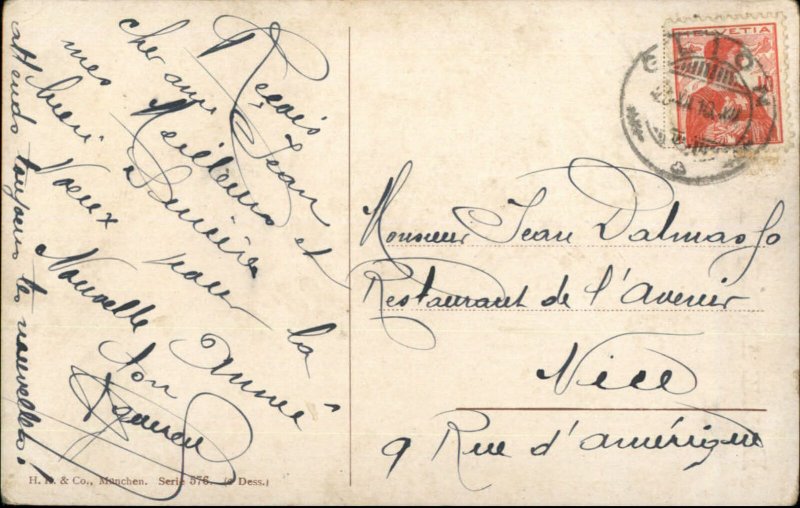 Reçois Jean
cher ami
mes Meilleurs et
Sincères
Voeux pour la
Nouvelle Année
Ton
attends toujours tes nouvelles!
HELVETIA
Monsieur Jean Dalmasso
Restaurant de l'Avenir
Nice
9 Rue d'amérique
& Co., München. Serie 376. (6 Dess.)